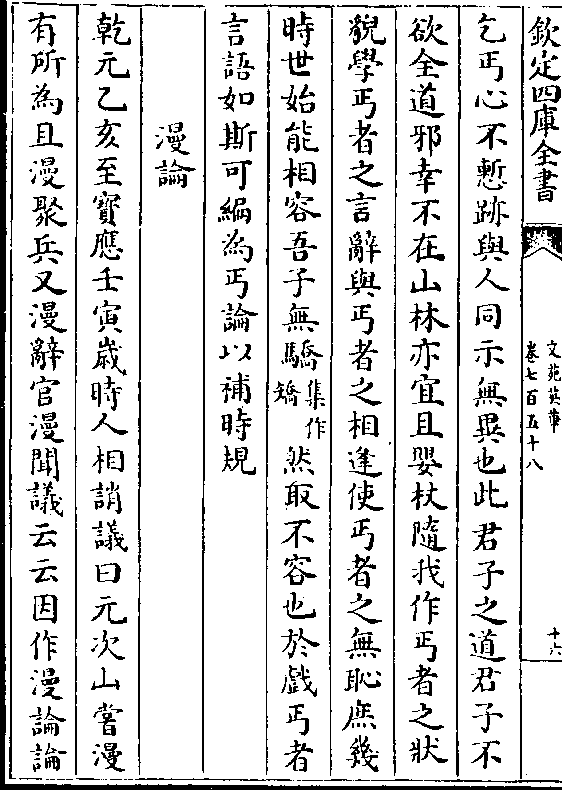 欽定四庫全書
文苑英華
卷七百五十八
十六
乞丐心不慙跡與人同示無異也此君子之道君子不
欲全道邪幸不在山林亦宜且嬰杖隨我作丐者之狀
貌學丐者之言辭與丐者之相逢使丐者之無恥庶幾
時世始能相容吾子無驕集作矯然取不容也於戲丐者
言語如斯可編為丐論以補時規
漫論
乾元乙亥至寶應壬寅歲時人相誚議曰元次山嘗漫
有所為且漫聚兵又漫辭官漫聞議云云因作漫論論